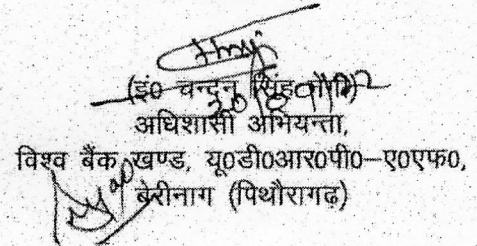 (इं० चन्दन सिंह नेगी)
अधिशासी अभियन्ता,
विश्व बैंक खण्ड, यू0डी0आर0पी0–ए0एफ0,
बेरीनाग (पिथौरागढ़)